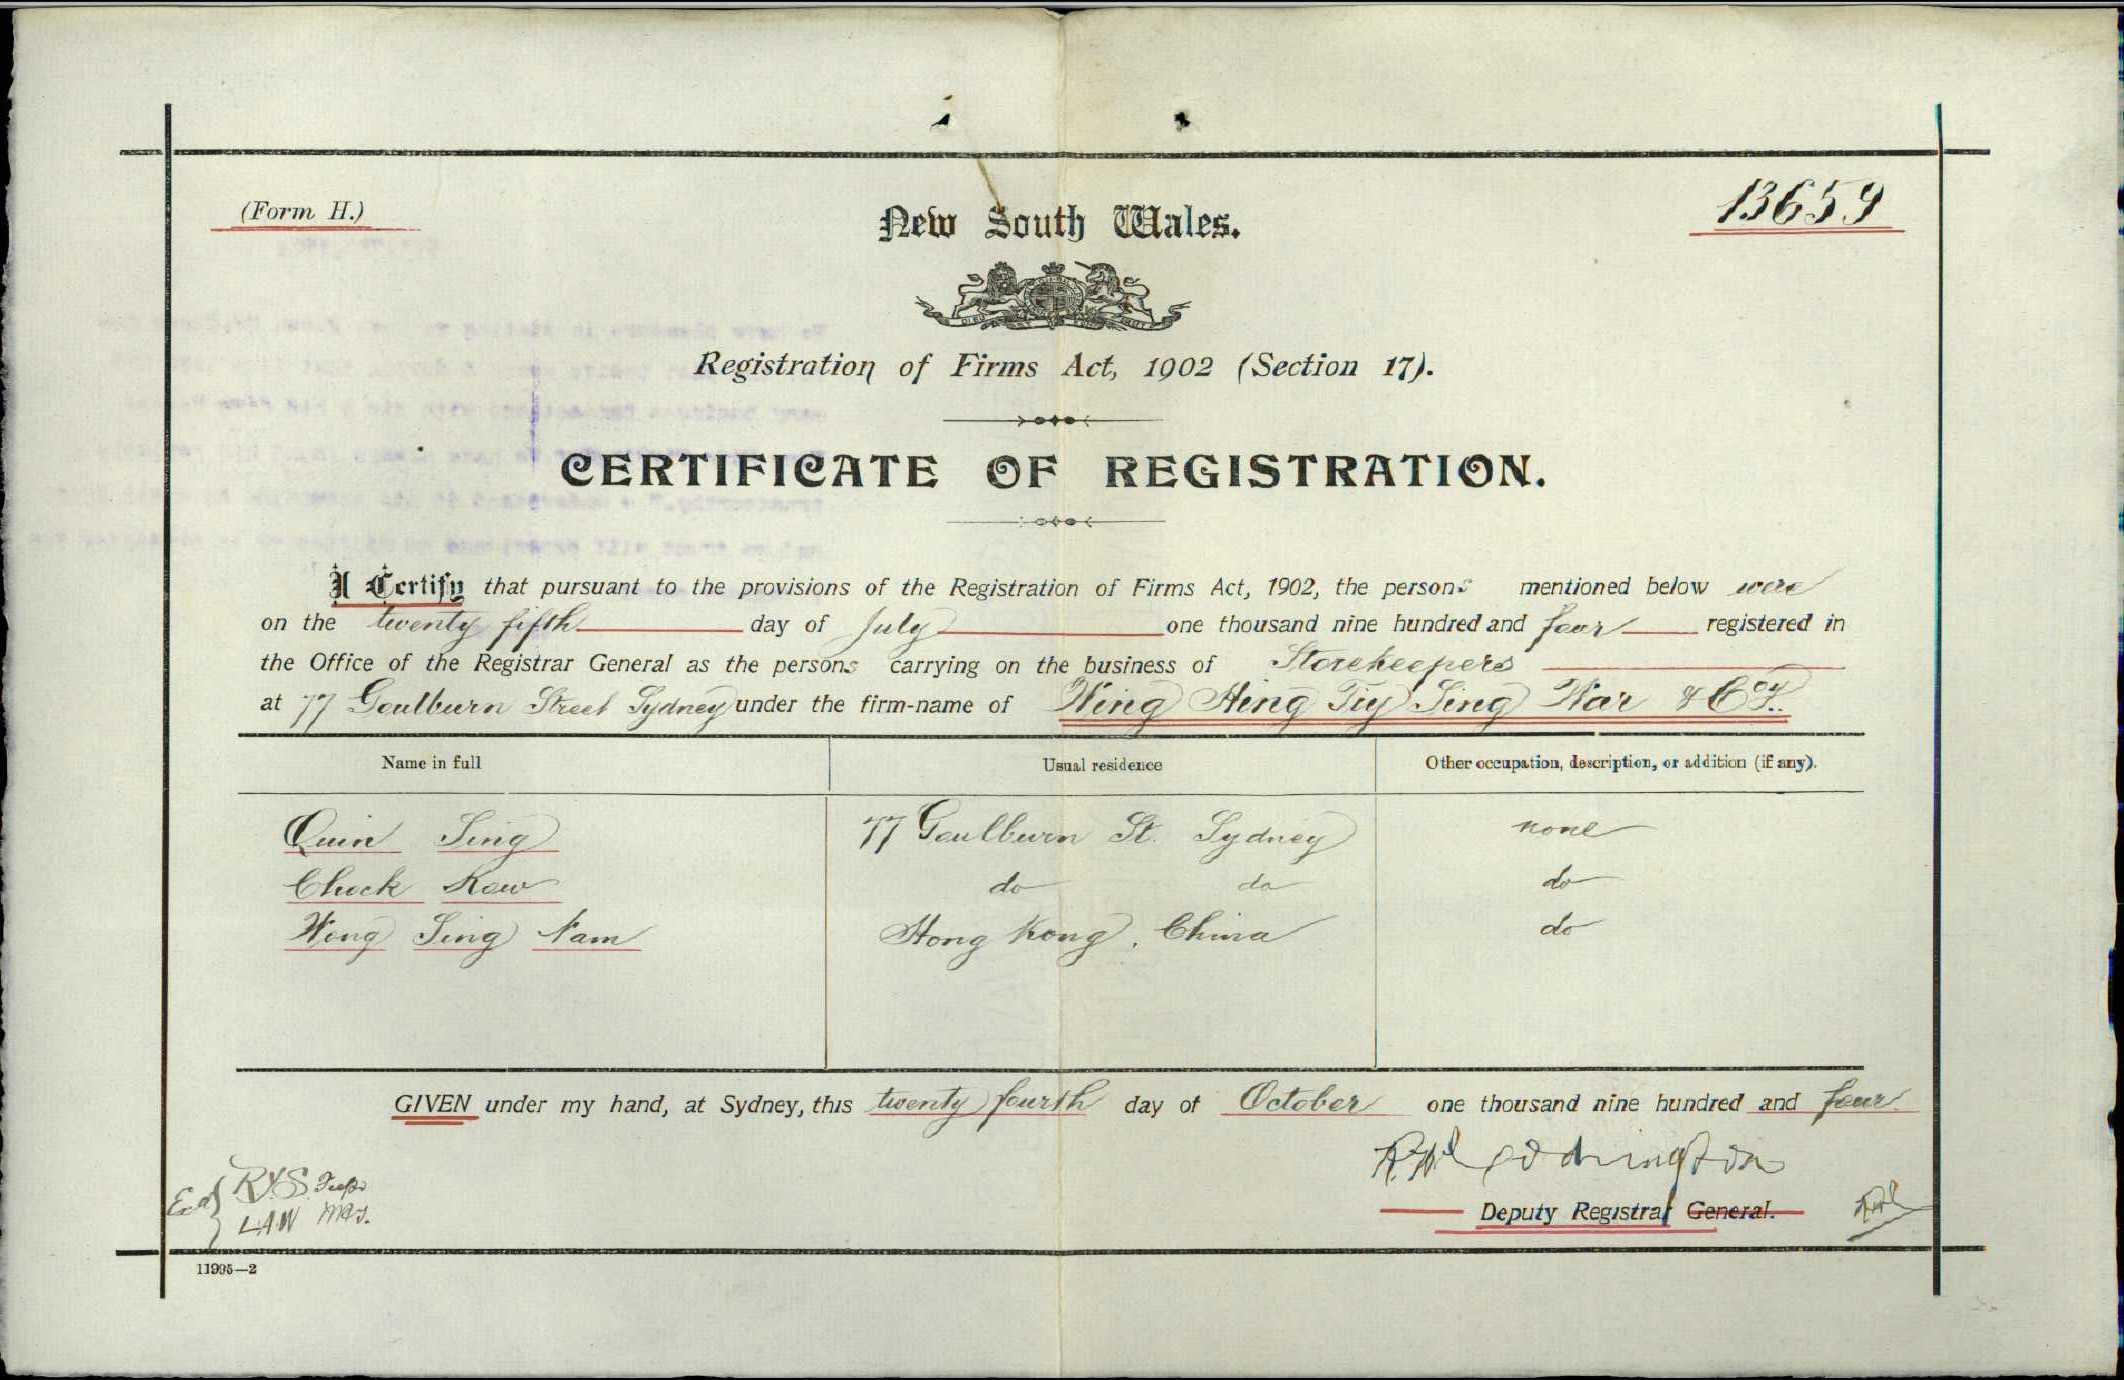 (Form H.)
13659
New South Wales.
Registration of Firms Act, 1902 (Section 17).
CERTIFICATE OF REGISTRATION.
I Certify that pursuant to the provisions of the Registration of Firms Act, 1902, the persons mentioned below were
on the twenty fifth day of July one thousand nine hundred and four registered in
the Office of the Registrar General as the persons carrying on the business of Storekeepers
at 77 Goulburn Street Sydney under the firm-name of Wing Hing Tiy Sing War & Coy.
Name in full Usual residence Other occupation, description, or addition (if any).
Quin Sing 77 Goulburn St. Sydney none
Chock Kow do do do
Wong Sing Nam Hong Kong, China do
GIVEN under my hand, at Sydney, this twenty fourth day of October one thousand nine hundred and four
Deputy Registrar General.
L.A.W
11995—2